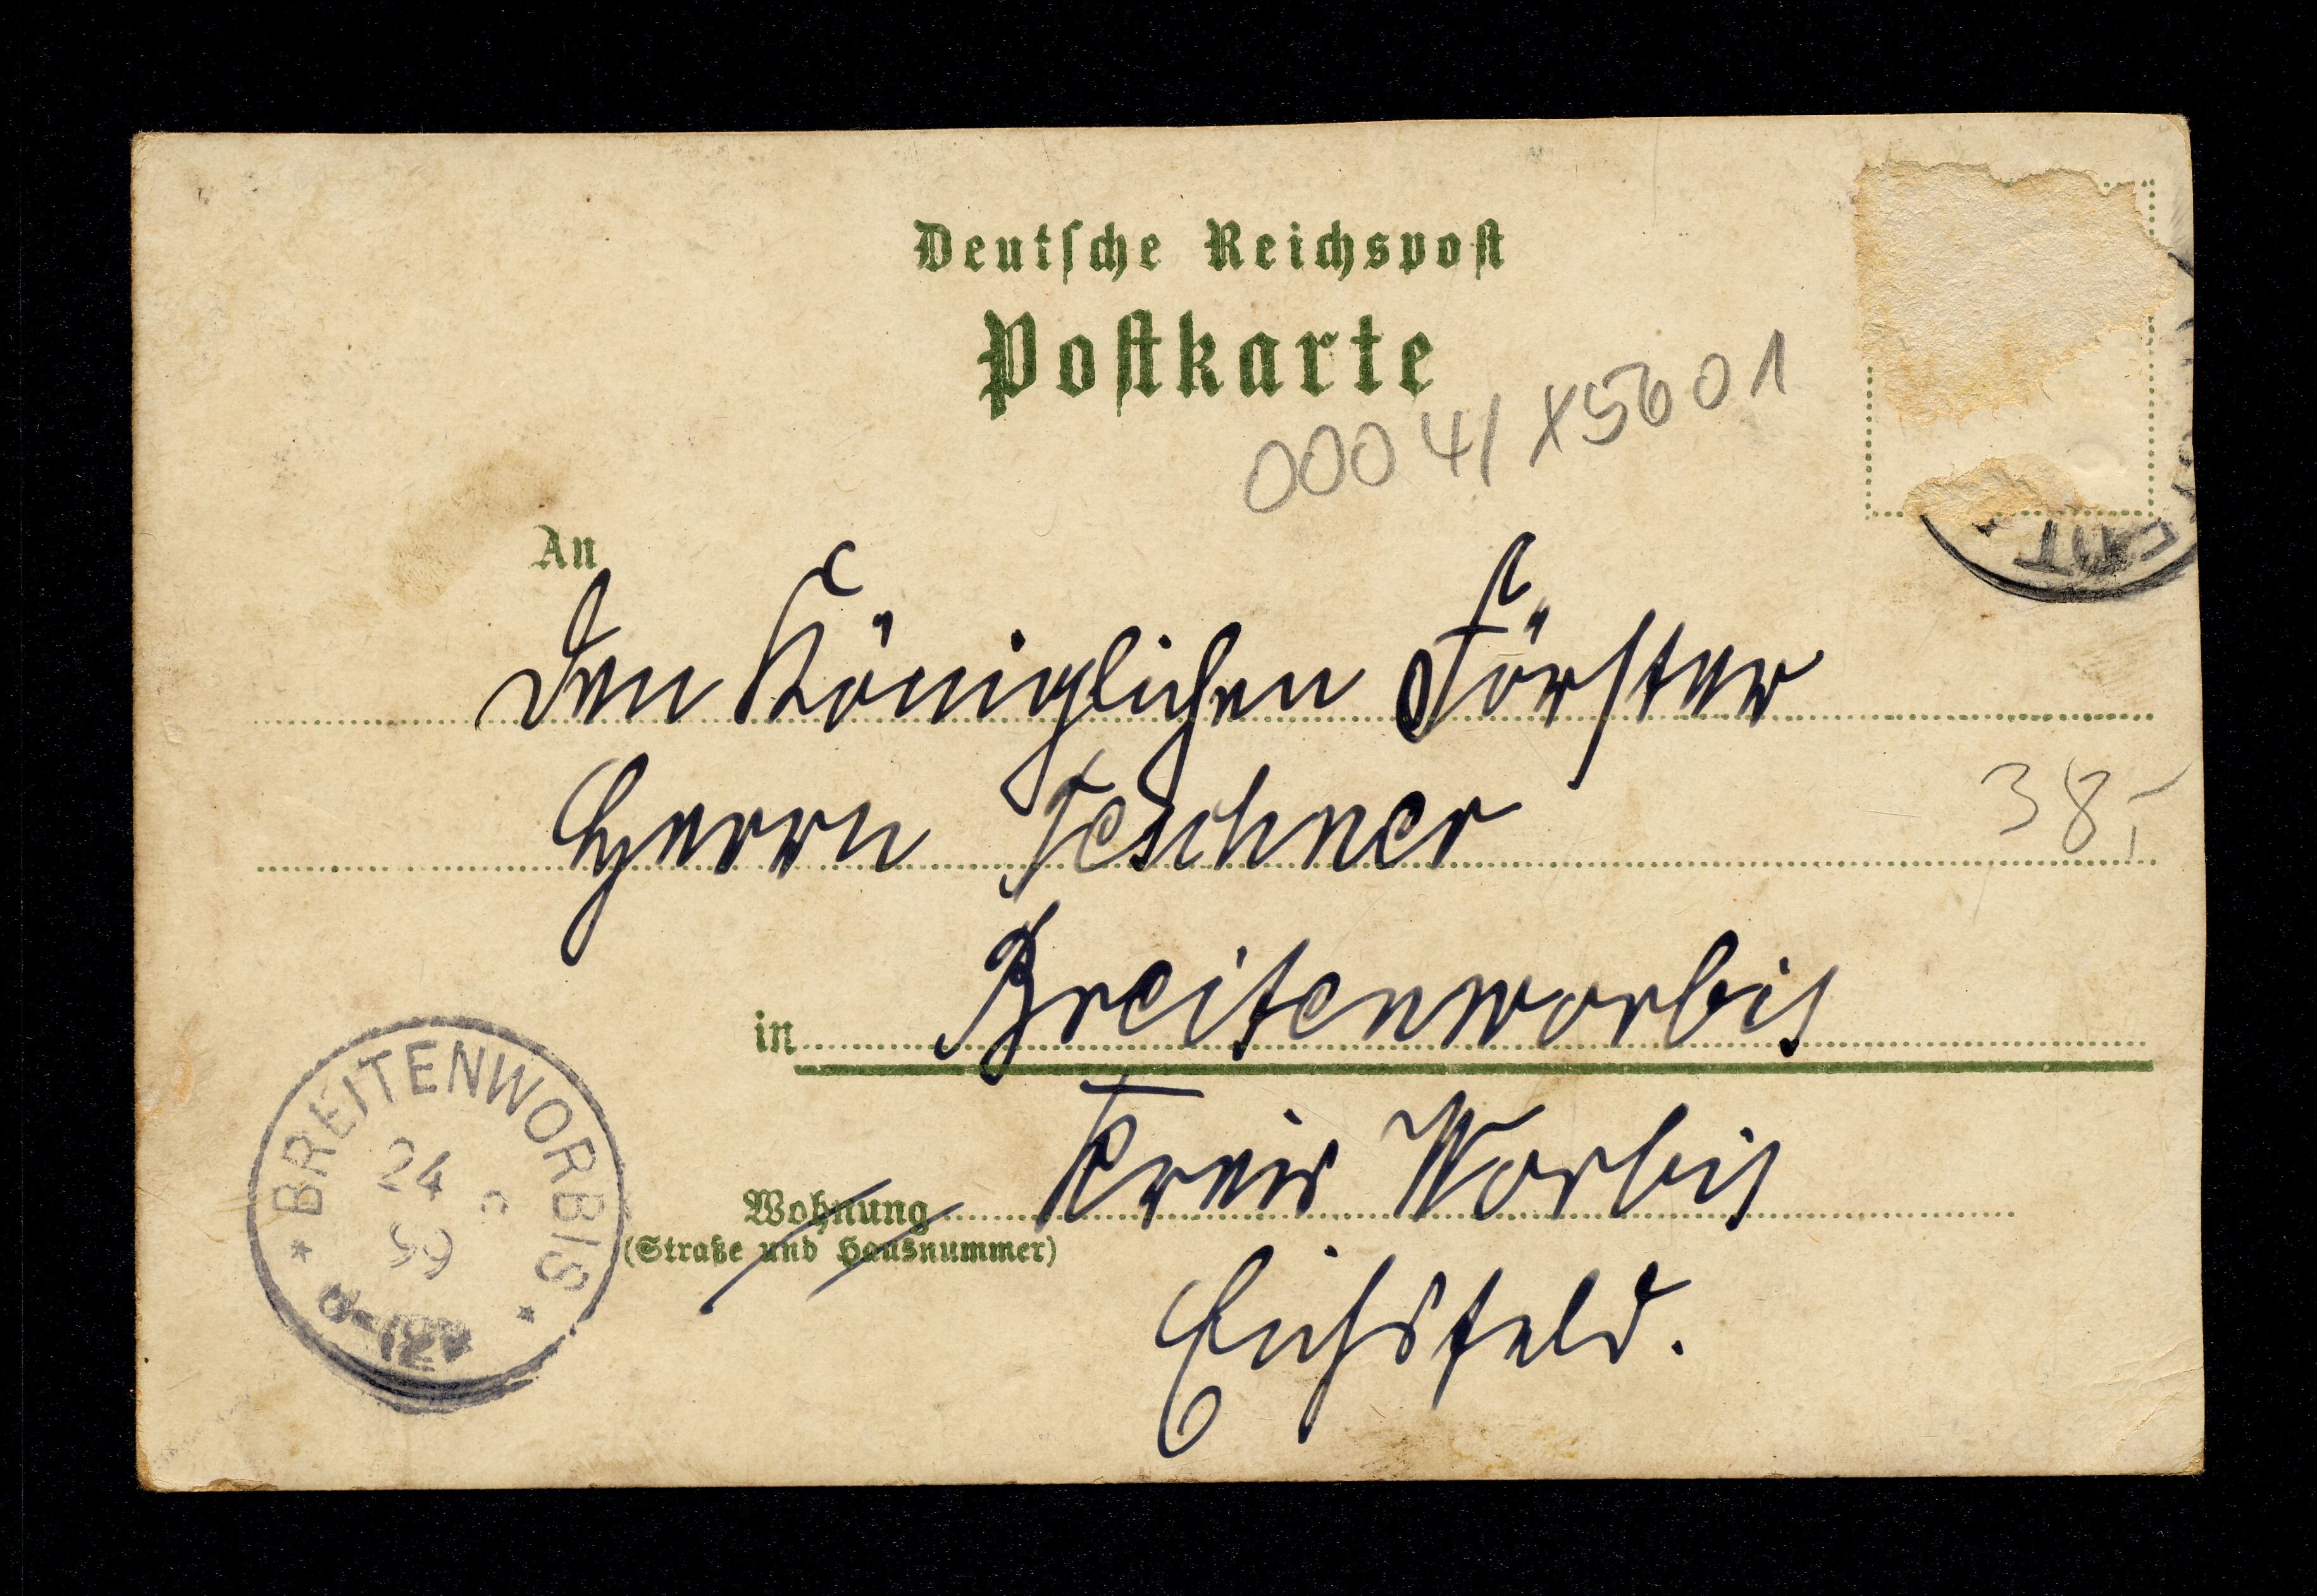 Deutsche Reichspost
Postkarte
00041X5601
An
Den Königlichen Förster
Herrn Teschner
38,-
in Breitenworbis
Kreis Worbis
Wohnung
(Straße und Hausnummer)
Eichsfeld.
* BREITENWORBIS *
24
99